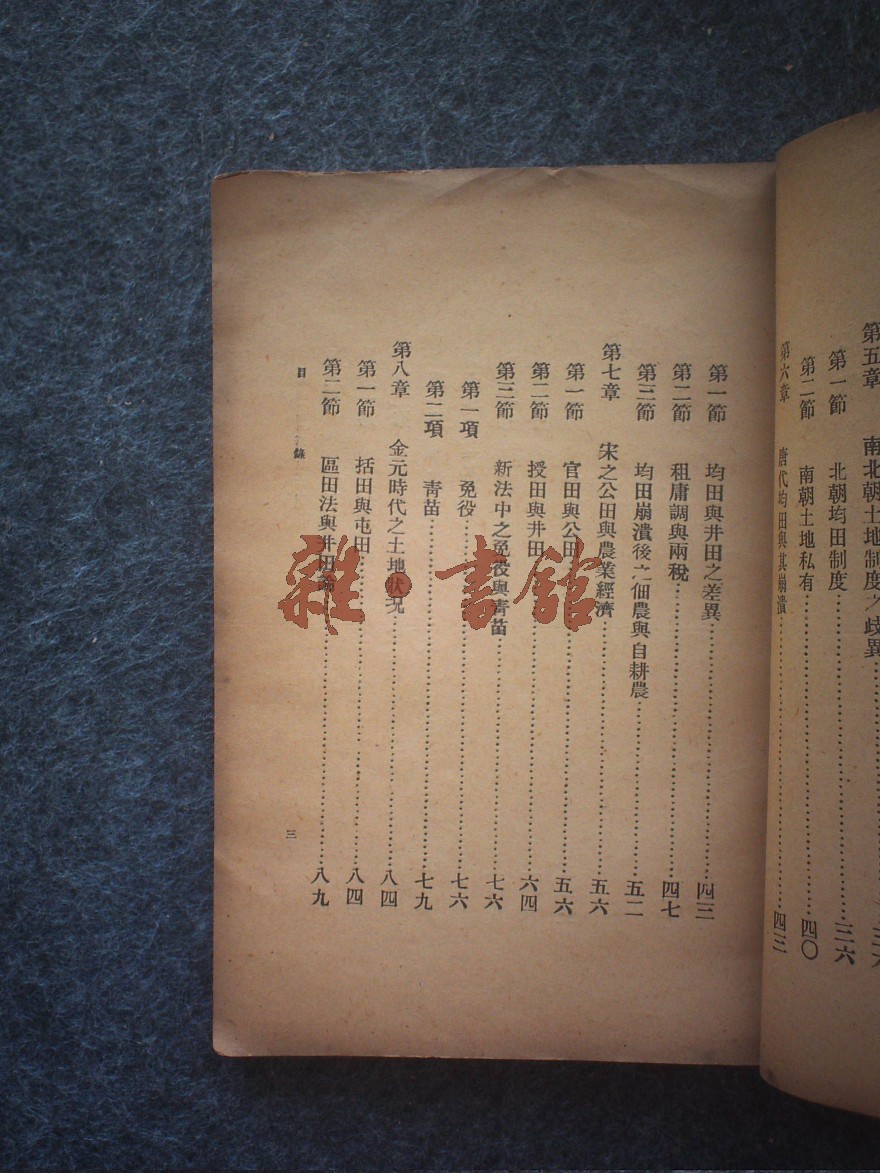 第五章　南北朝土地制度之歧異……三六
第一節　北朝均田制度……三六
第二節　南朝土地私有……四〇
第六章　唐代均田與其崩潰……四三
第一節　均田與井田之差異……四三
第二節　租庸調與兩稅……四七
第三節　均田崩潰後之佃農與自耕農……五二
第七章　宋之公田與農業經濟……五六
第一節　官田與公田……五六
第二節　授田與井田……六四
第三節　新法中之免役與青苗……七六
第一項　免役……七六
第二項　青苗……七九
第八章　金元時代之土地狀況……八四
第一節　括田與屯田……八四
第二節　區田法與井田論……八九
目　錄
三
雜·書館